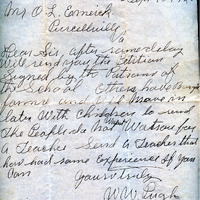 Mr O L Emerick
Purcellville
Va
Dear Sir, after some delay
We send you the Petition
Signed by the Patrons of
the School Others have
favor and will move in
later With Children to send
The Baptists Watson for
a Teacher Send a Teacher that
have had some Experience if you
Can
Yours truly
W W Pugh